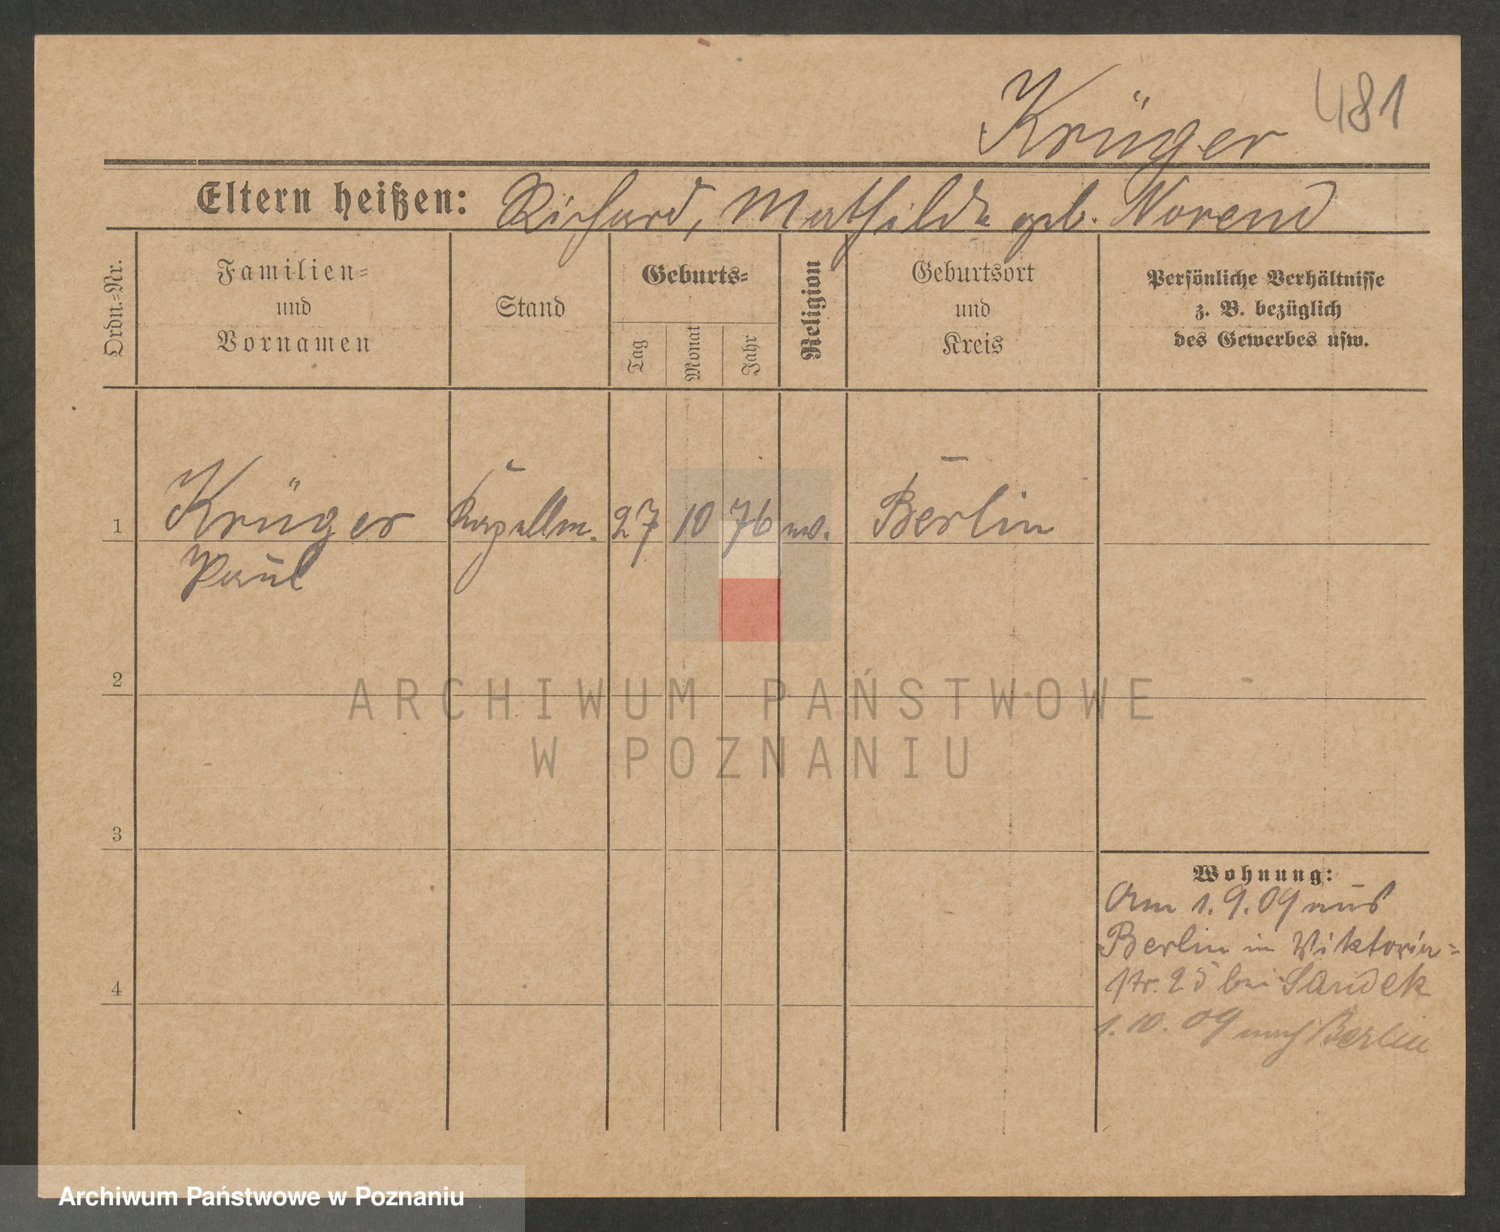 Krüger 481
Eltern heißen: Richard, Mathilde geb. Norend
Ordn.-Nr.
Familien-
und
Vornamen
Stand
Geburts-
Tag
Monat
Jahr
Religion
Geburtsort
und
Kreis
Persönliche Verhältnisse
z. B. bezüglich
des Gewerbes usw.
1 Krüger Kapellm. 27 10 76 ev. Berlin
Paul
2
3
4
Wohnung:
Am 1.9.09 aus
Berlin in Viktoria-
str. 25 bei Sandek
1.10.09 nach Berlin
ARCHIWUM PAŃSTWOWE
W POZNANIU
Archiwum Państwowe w Poznaniu